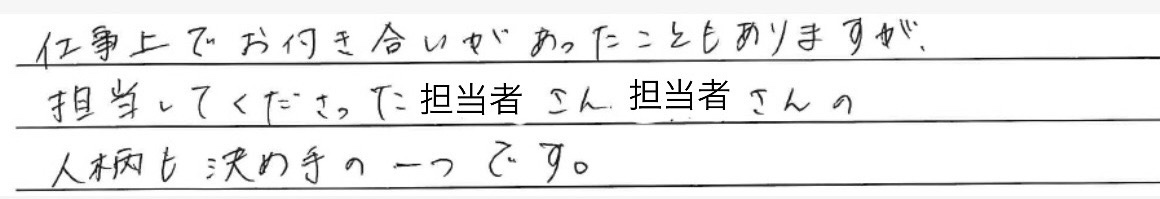 仕事上でお付き合いがあったこともありますが、
担当してくださった担当者さん、担当者さんの
人柄も決め手の一つです。